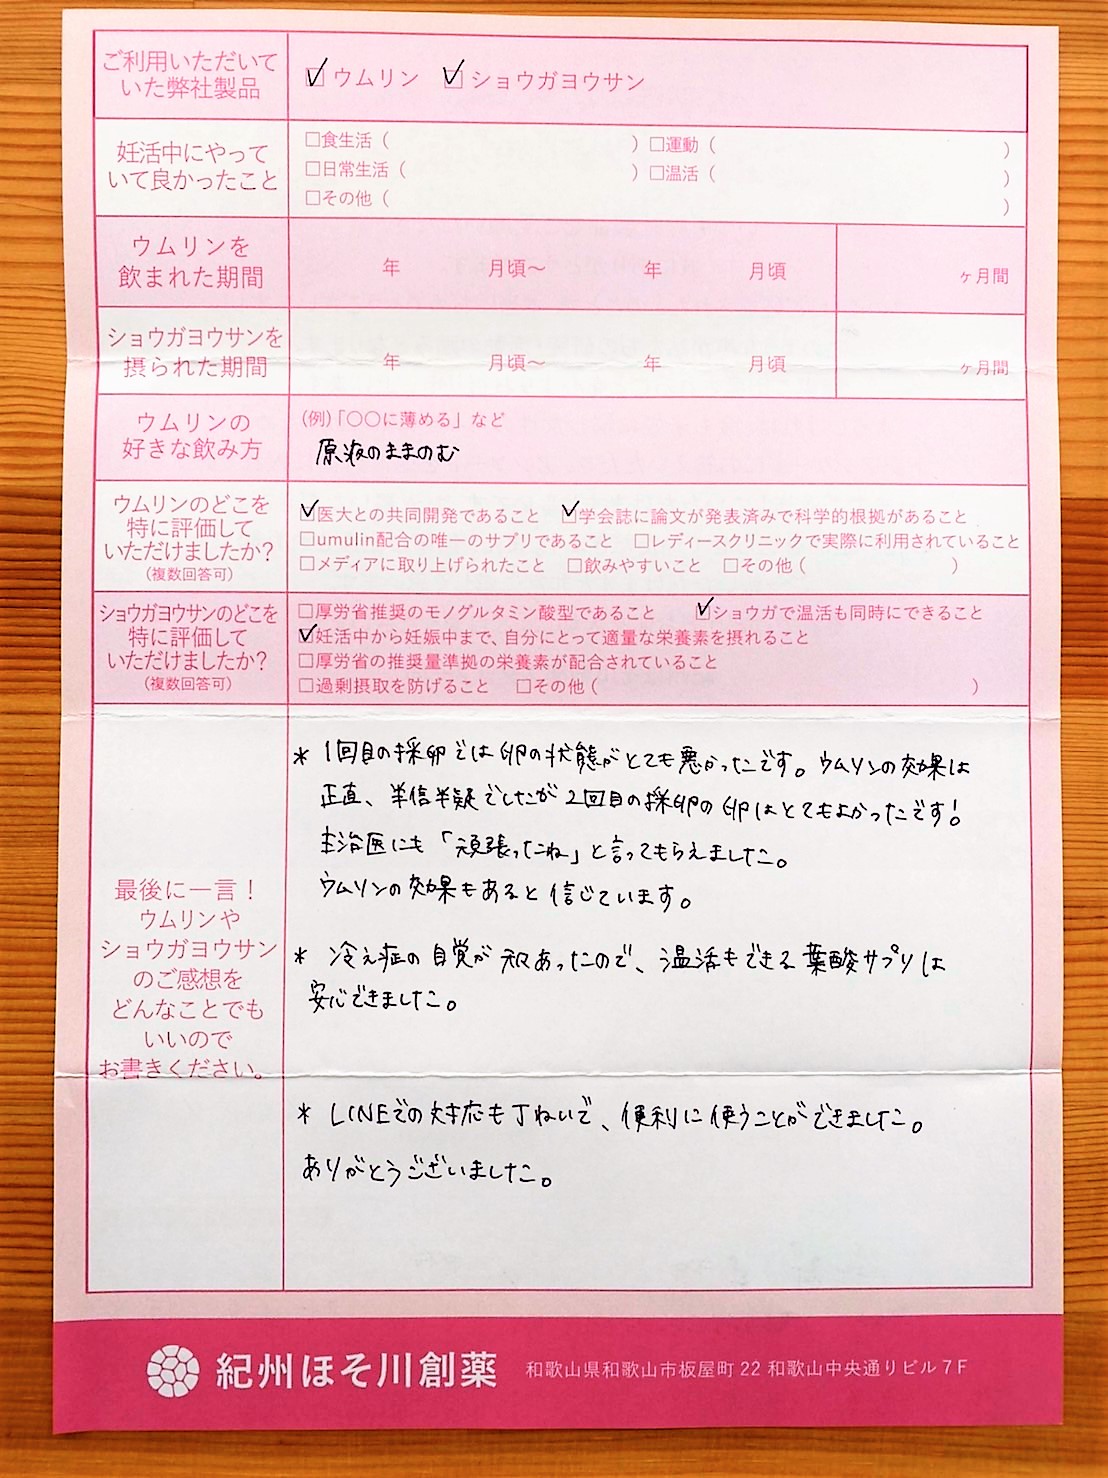 ご利用いただいて
いた弊社製品
☑ウムリン ☑ショウガヨウサン
妊活中にやって
いて良かったこと
□食生活（　　　）□運動（　　　）
□日常生活（　　　）□温活（　　　）
□その他（　　　）
ウムリンを
飲まれた期間
年　月頃〜　年　月頃　ヶ月間
ショウガヨウサンを
摂られた期間
年　月頃〜　年　月頃　ヶ月間
ウムリンの
好きな飲み方
（例）「〇〇に薄める」など
原液のままのむ
ウムリンのどこを
特に評価して
いただけましたか？
（複数回答可）
☑医大との共同開発であること ☑学会誌に論文が発表済みで科学的根拠があること
□umulin配合の唯一のサプリであること □レディースクリニックで実際に利用されていること
□メディアに取り上げられたこと □飲みやすいこと □その他（　　　）
ショウガヨウサンのどこを
特に評価して
いただけましたか？
（複数回答可）
□厚労省推奨のモノグルタミン酸型であること ☑ショウガで温活も同時にできること
☑妊活中から妊娠中まで、自分にとって適量な栄養素を摂れること
□厚労省の推奨量準拠の栄養素が配合されていること
□過剰摂取を防げること □その他（　　　）
最後に一言！
ウムリンや
ショウガヨウサン
のご感想を
どんなことでも
いいので
お書きください。
＊ 1回目の採卵では卵の状態がとても悪かったです。ウムリンの効果は
正直、半信半疑でしたが2回目の採卵の卵はとてもよかったです！
主治医にも「頑張ったね」と言ってもらえました。
ウムリンの効果もあると信じています。
＊ 冷え症の自覚があったので、温活もできる葉酸サプリは
安心できました。
＊ LINEでの対応も丁ねいで、便利に使うことができました。
ありがとうございました。
紀州ほそ川創薬 和歌山県和歌山市板屋町 22 和歌山中央通りビル 7 F